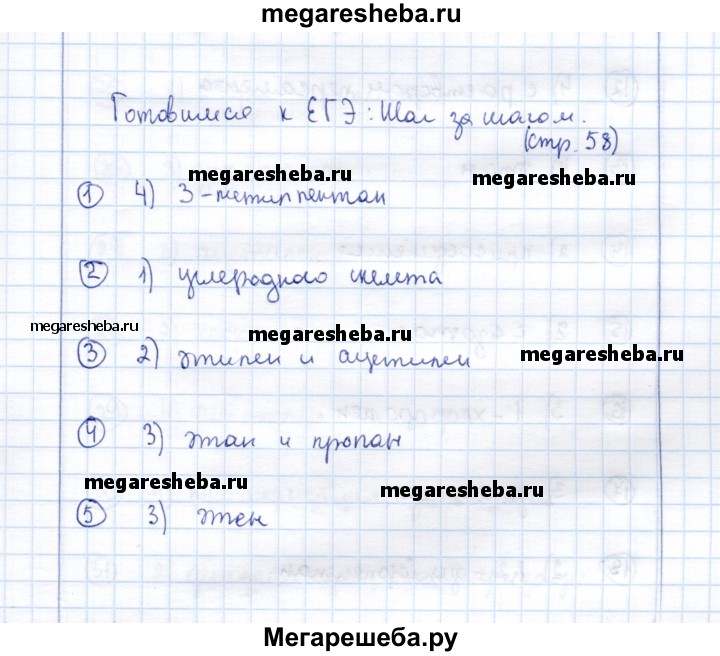 megaresheba.ru
Готовимся к ЕГЭ: Шаг за шагом.
(стр. 58)
megaresheba.ru
megaresheba.ru
① 4) 3-метилпентан
② 1) углеродного скелета
megaresheba.ru
megaresheba.ru
megaresheba.ru
③ 2) этилен и ацетилен
④ 3) этан и пропан
megaresheba.ru
megaresheba.ru
⑤ 3) этен
Мегарешеба.ру